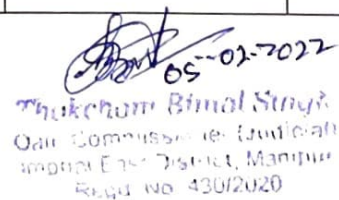 05-02-2022
Thokchom Bimol Singh
Oath Commissioner (Judicial)
Imphal East District, Manipur
Regd No. 430/2020